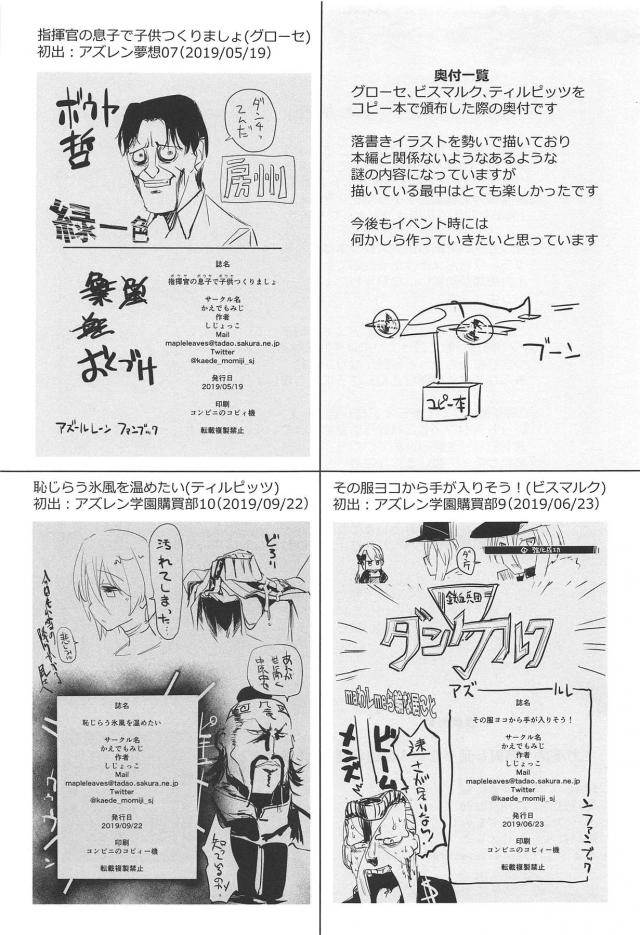 指揮官の息子で子供つくりましょ(グローセ)
初出：アズレン夢想07(2019/05/19)
ボウト
哲
ダンチっ
てんだ
房州
緑一色
誌名
指揮官の息子で子供つくりましょ
サークル名
かえでもみじ
作者
しじょっこ
Mail
mapleleaves@tadao.sakura.ne.jp
Twitter
@kaede_momiji_sj
発行日
2019/05/19
印刷
コンビニのコピィ機
転載複製禁止
おくづけ
アズールレーン ファンブック
奥付一覧
グローセ、ビスマルク、ティルピッツを
コピー本で頒布した際の奥付です
落書きイラストを勢いで描いており
本編と関係ないようなあるような
謎の内容になっていますが
描いている最中はとても楽しかったです
今後もイベント時には
何かしら作っていきたいと思っています
ブーン
コピー本
恥じらう氷風を温めたい(ティルピッツ)
初出：アズレン学園購買部10(2019/09/22)
汚れて
しまった…
どろり
悲しみ
誌名
恥じらう氷風を温めたい
サークル名
かえでもみじ
作者
しじょっこ
Mail
mapleleaves@tadao.sakura.ne.jp
Twitter
@kaede_momiji_sj
発行日
2019/09/22
印刷
コンビニのコピィー機
転載複製禁止
その服ヨコから手が入りそう！(ビスマルク)
初出：アズレン学園購買部9(2019/06/23)
強化成功
鉄血兵団
ダンケルク
アズールレ
ーンファンブック
ビーム
メンズ
速さが足りない！
誌名
その服ヨコから手が入りそう！
サークル名
かえでもみじ
作者
しじょっこ
Mail
mapleleaves@tadao.sakura.ne.jp
Twitter
@kaede_momiji_sj
発行日
2019/06/23
印刷
コンビニのコピィー機
転載複製禁止